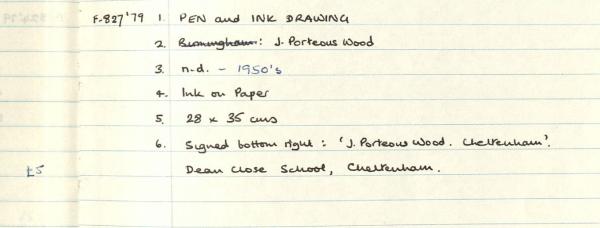 F-827'79 1. PEN and INK DRAWING
2. Birmingham: J. Porteous Wood
3. n.d. - 1950's
4. Ink on Paper
5. 28 x 35 cms
6. Signed bottom right: 'J. Porteous Wood. Cheltenham'.
£5 Dean Close School, Cheltenham.